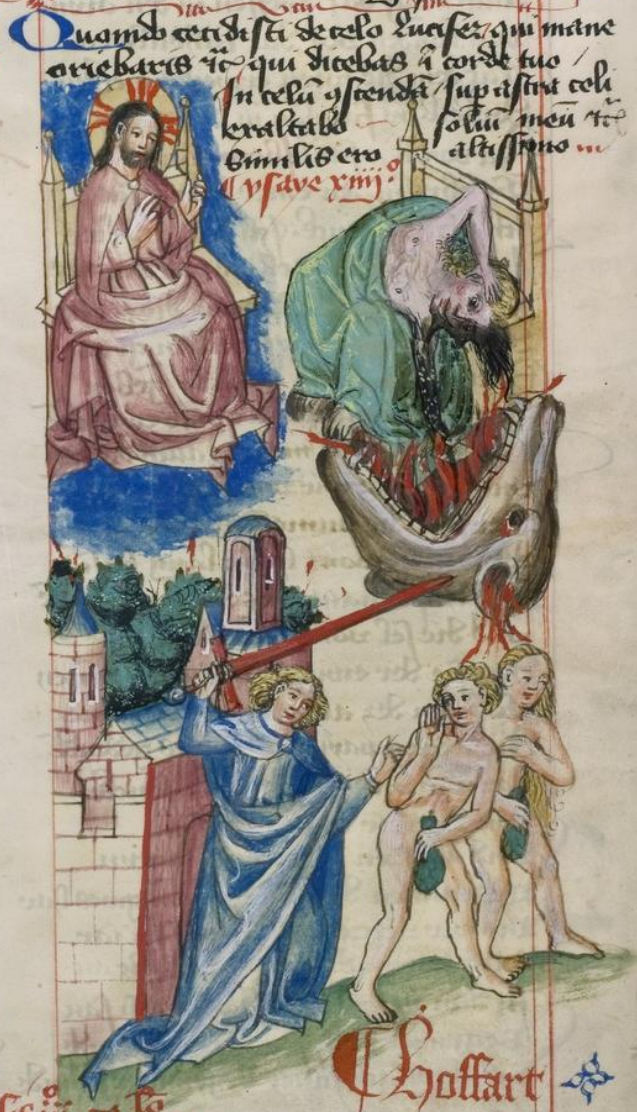 Quomodo cecidisti de celo Lucifer qui mane
oriebaris ⁊c̄ qui dicebas ī corde tuo /
In celū ꝯscendā / sup astra celi
exaltabo soliū meū ⁊c̄
Similis ero altissimo
ysaye xiiij°
Hoffart